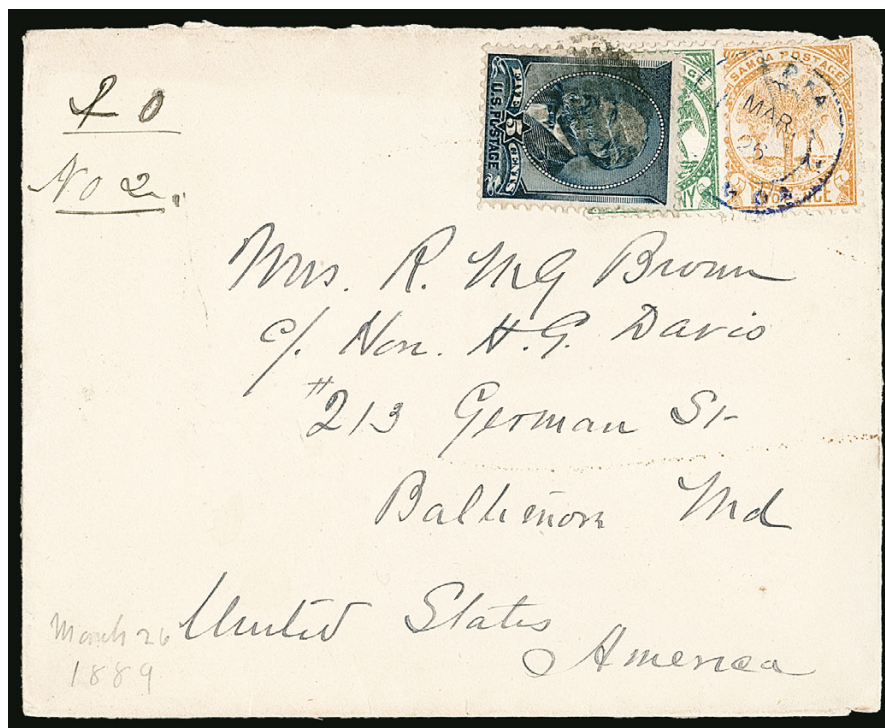 No 2.
FIVE 5 CENTS
U.S. POSTAGE
AGE
NY
SAMOA POSTAGE
MAR.
26
Mrs. R. McG Brown
c/. Hon. H. G. Davis
#213 German St
Baltimore Md
United States
America
March 26
1889